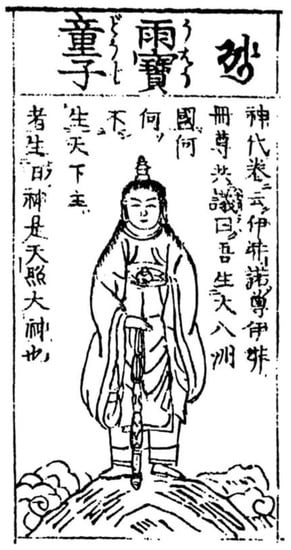 雨寳
うはう
童子
どうじ
神代卷云伊弉諾尊伊弉
冊尊共議曰吾生大八洲
國何
何
不
生天下主
者生日神是天照大神也